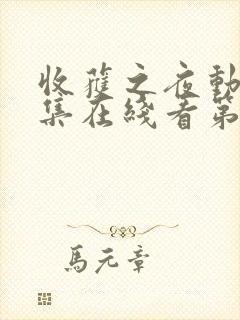 收獲之夜動
集在綫看第
馬元章